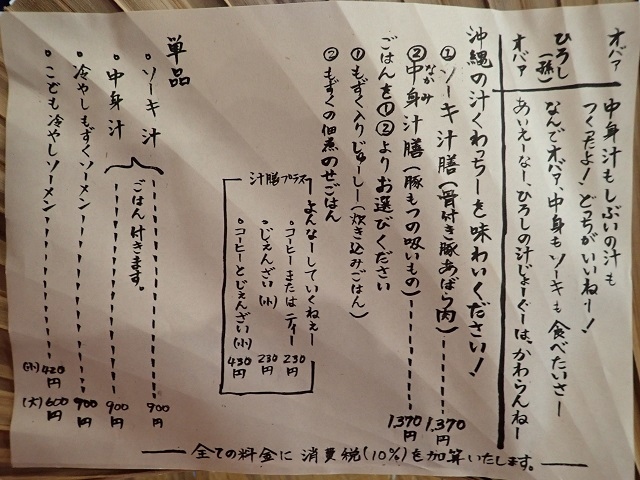 オバァ 中身汁もしぶいの汁も
つくったよ！どっちがいいねー！
ひろし(孫) なんでオバァ、中身もソーキも食べたいさー
オバァ あいえーなー、ひろしの汁じょーぐーは、かわらんねー
沖縄の汁くわっちーを味わいください！
① ソーキ汁膳(骨付き豚あばら肉) 1,370円
② 中身汁膳(豚もつの吸いもの) 1,370円
なかみ
ごはんを①②よりお選びください
① もずく入りじゅーしー(炊き込みごはん)
② もずくの佃煮のせごはん
汁膳プラス
よんなーしていくねぇー
・コーヒーまたはティー 230円
・じぇんざい(小) 230円
・コーヒーとじぇんざい(小) 430円
単品
・ソーキ汁 900円
・中身汁 900円
ごはん付きます。
・冷やしもずくソーメン 900円
・こども冷やしソーメン (小)420円
(大)600円
全ての料金に消費税(10%)を加算いたします。